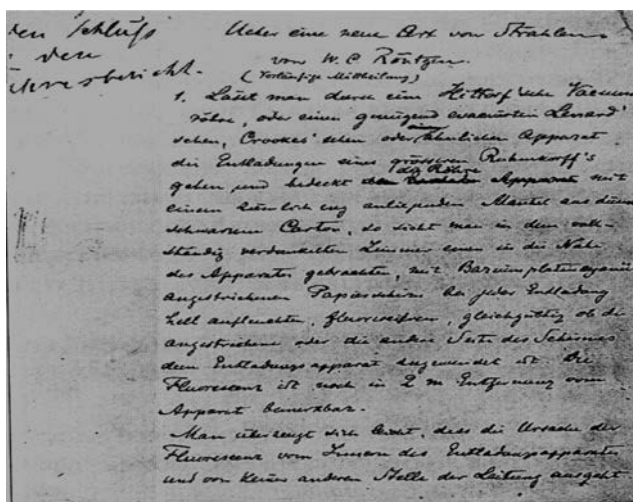 den Schluß
den
Jahresbericht.
Ueber eine neue Art von Strahlen
von W. C. Röntgen.
(Vorläufige Mittheilung)
1. Lässt man durch eine Hittorf'sche Vacuum
röhre, oder einen genügend evacuirten Lenard'
schen, Crookes'schen oder ähnlichen Apparat
die Entladungen eines grösseren Ruhmkorff's
gehen und bedeckt die Röhre Apparat mit
einem ziemlich eng anliegenden Mantel aus dünnem
schwarzem Carton, so sieht man in dem voll-
ständig verdunkelten Zimmer einen in die Nähe
des Apparates gebrachten, mit Bariumplatincyanür
angestrichenen Papierschirm bei jeder Entladung
hell aufleuchten, fluoresciren, gleichgültig ob die
angestrichene oder die andere Seite des Schirmes
dem Entladungsapparat zugewendet ist. Die
Fluorescenz ist noch in 2 m Entfernung vom
Apparat bemerkbar.
Man überzeugt sich leicht, dass die Ursache der
Fluorescenz vom Innern des Entladungsapparates
und von keiner anderen Stelle der Leitung ausgeht